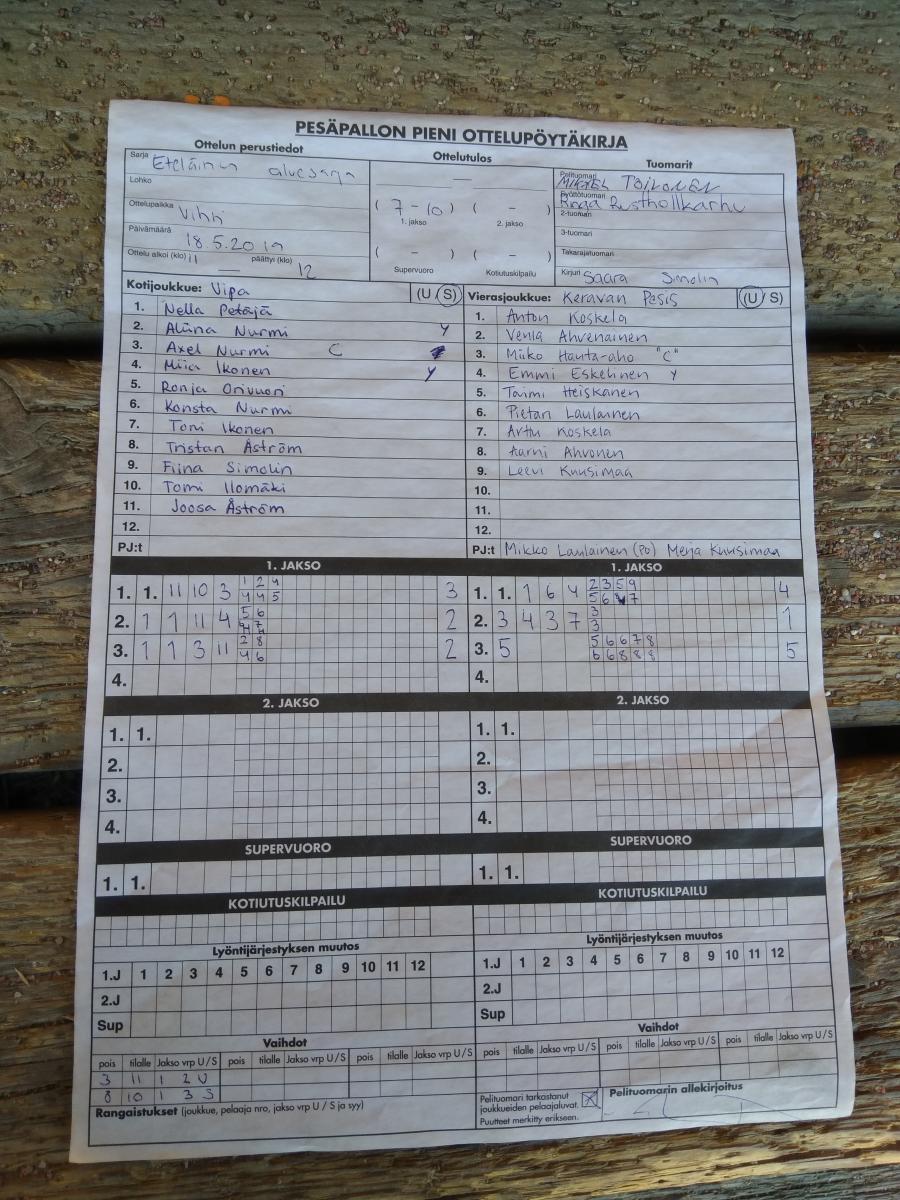 PESÄPALLON PIENI OTTELUPÖYTÄKIRJA
Ottelun perustiedot
Ottelutulos
Tuomarit
Sarja Eteläinen aluesarja
Lohko
Ottelupaikka Vihti
Päivämäärä 18.5.2019
Ottelu alkoi (klo) 11 — päättyi (klo) 12
—
( 7 - 10 ) ( - )
1. jakso 2. jakso
( - ) ( - )
Supervuoro Kotiutuskilpailu
Pelituomari MIKAEL TOIVONEN
Syöttötuomari Rusthollkarhu
2-tuomari
3-tuomari
Takarajatuomari
Kirjuri Saara Simolin
Kotijoukkue: Vipa (U / S)
1. Nella Petäjä
2. Aliina Nurmi Y
3. Axel Nurmi C
4. Miia Ikonen Y
5. Ronja Orivuori
6. Konsta Nurmi
7. Toni Ikonen
8. Tristan Åström
9. Fiina Simolin
10. Tomi Ilomäki
11. Joosa Åström
12.
PJ:t
Vierasjoukkue: Keravan Pesis (U / S)
1. Anton Koskela
2. Venla Ahvenainen
3. Miiko Hauta-aho "C"
4. Emmi Eskelinen Y
5. Taimi Heiskanen
6. Pietari Laulainen
7. Arttu Koskela
8. Aarni Ahvonen
9. Leevi Kuusimaa
10.
11.
12.
PJ:t Mikko Laulainen (PO) Merja Kuusimaa
1. JAKSO
1. 1. 11 10 3 1 2 4 3
4 4 5
2. 1 1 11 4 5 6 2
3. 1 1 3 11 2 8 2
4 6
4.
1. JAKSO
1. 1. 1 6 4 2 3 5 9 4
5 6 7
2. 3 4 3 7 3 1
3
3. 5 5 6 6 7 8 5
6 6 8 8 8
4.
2. JAKSO
1. 1.
2.
3.
4.
2. JAKSO
1. 1.
2.
3.
4.
SUPERVUORO
1. 1.
SUPERVUORO
1. 1.
KOTIUTUSKILPAILU
KOTIUTUSKILPAILU
Lyöntijärjestyksen muutos
1.J 1 2 3 4 5 6 7 8 9 10 11 12
2.J
Sup
Lyöntijärjestyksen muutos
1.J 1 2 3 4 5 6 7 8 9 10 11 12
2.J
Sup
Vaihdot
pois tilalle Jakso vrp U / S pois tilalle Jakso vrp U / S pois tilalle Jakso vrp U / S
3 11 1 2 U
8 10 1 3 S
Vaihdot
pois tilalle Jakso vrp U / S pois tilalle Jakso vrp U / S pois tilalle Jakso vrp U / S
Rangaistukset (joukkue, pelaaja nro, jakso vrp U / S ja syy)
Pelituomari tarkastanut
joukkueiden pelaajaluvat. X
Puutteet merkitty erikseen.
Pelituomarin allekirjoitus